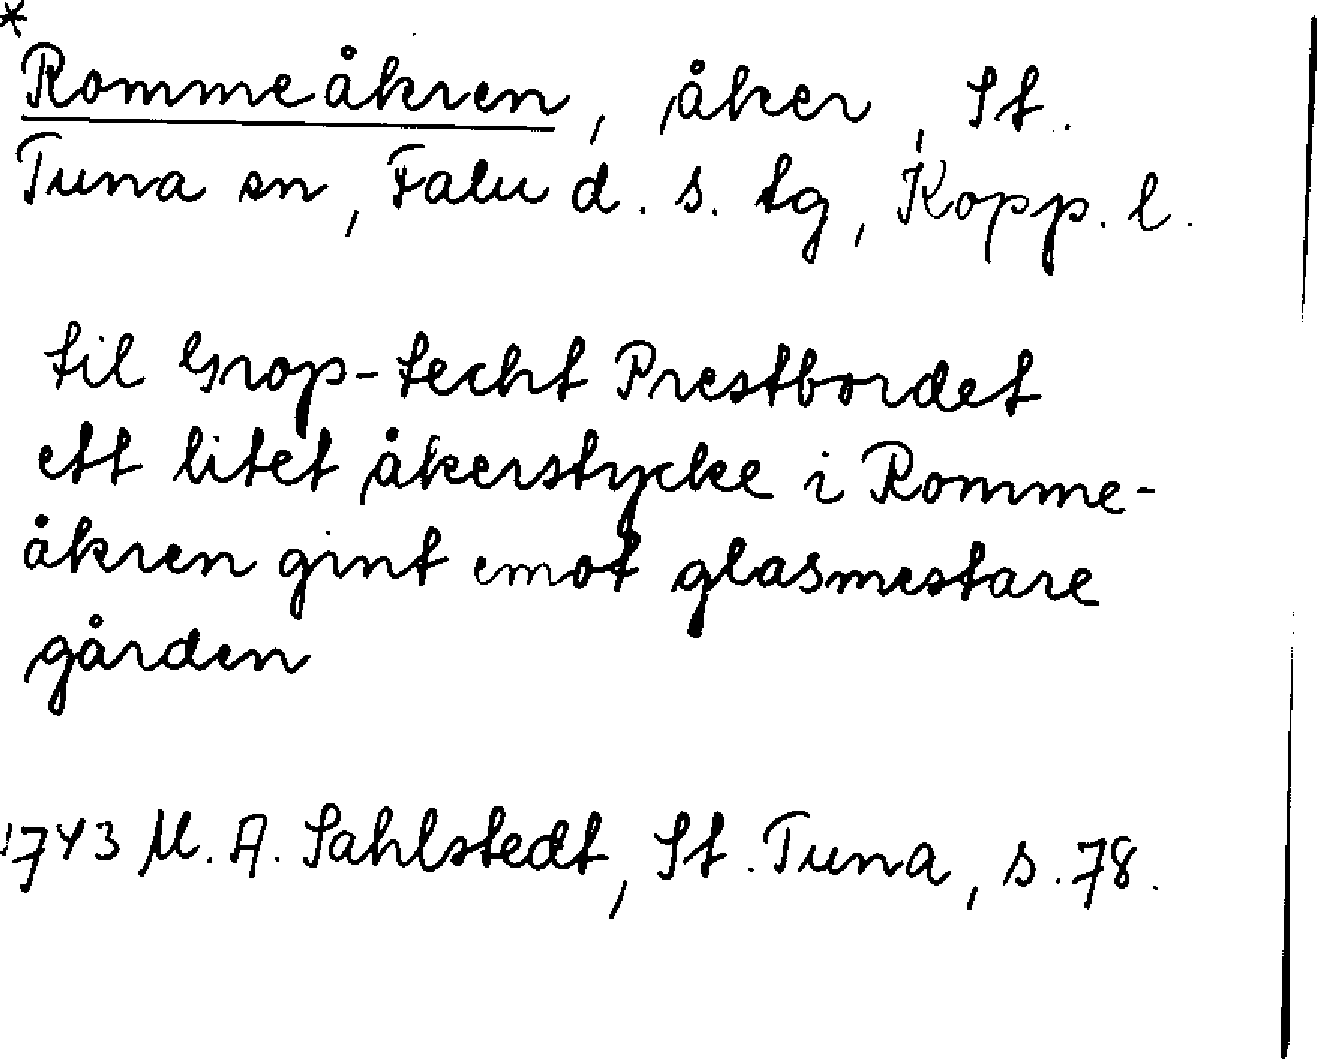 *
Rommeåkren, åker, St.
Tuna sn, Falu d. s. tg, Kopp. l.
til Grop-techt Prestbordet
ett litet åkerstycke i Romme-
åkren gint emot glasmestare
gården
1743 M. A. Sahlstedt, St. Tuna, s. 78.